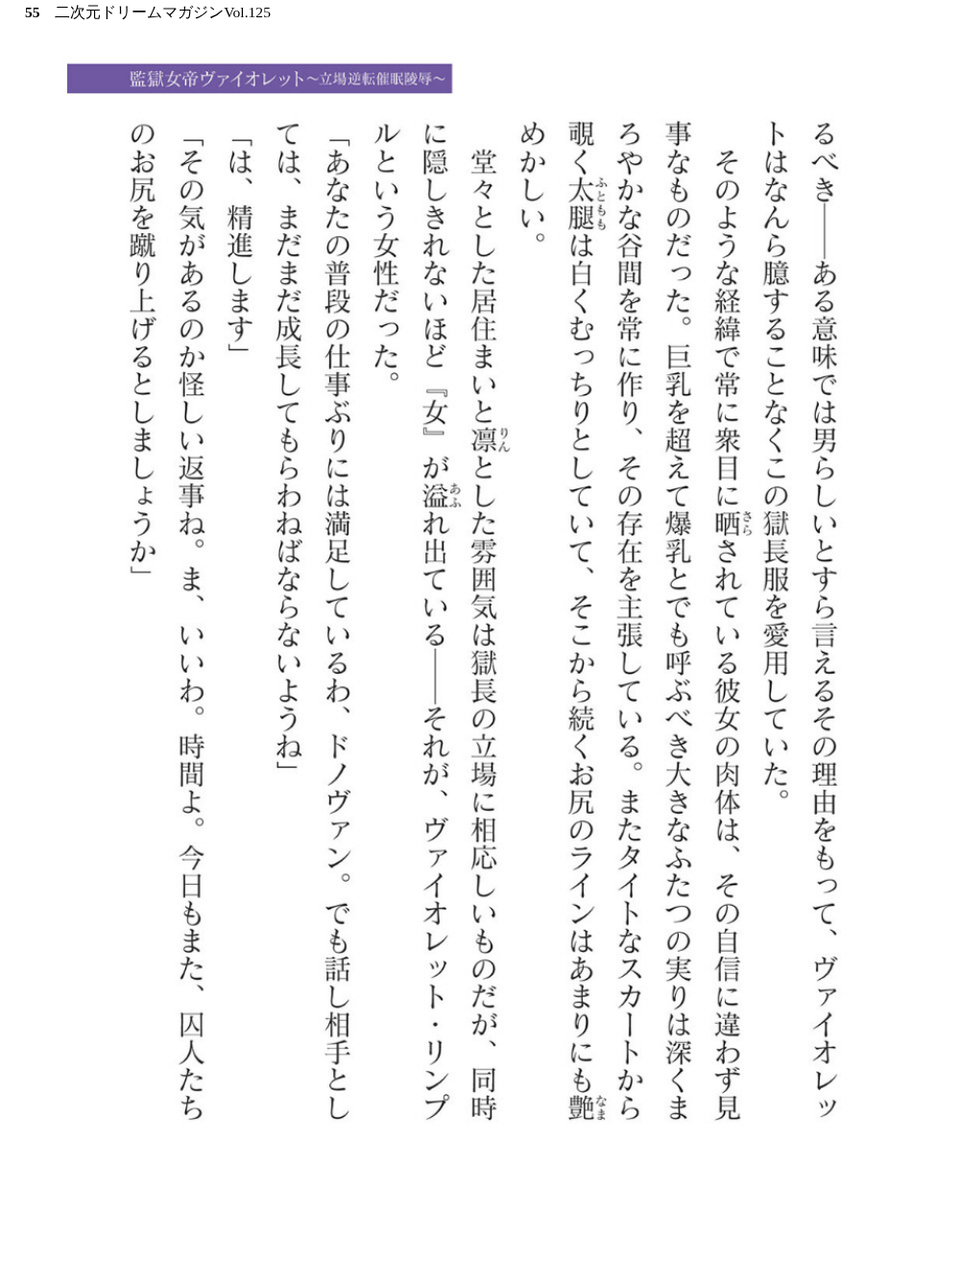 55 二次元ドリームマガジンVol.125
監獄女帝ヴァイオレット～立場逆転催眠陵辱～
るべき――ある意味では男らしいとすら言えるその理由をもって、ヴァイオレッ
トはなんら臆することなくこの獄長服を愛用していた。
　そのような経緯で常に衆目に晒されている彼女の肉体は、その自信に違わず見
事なものだった。巨乳を超えて爆乳とでも呼ぶべき大きなふたつの実りは深くま
ろやかな谷間を常に作り、その存在を主張している。またタイトなスカートから
覗く太腿は白くむっちりとしていて、そこから続くお尻のラインはあまりにも艶
めかしい。
　堂々とした居住まいと凛とした雰囲気は獄長の立場に相応しいものだが、同時
に隠しきれないほど『女』が溢れ出ている――それが、ヴァイオレット・リンプ
ルという女性だった。
「あなたの普段の仕事ぶりには満足しているわ、ドノヴァン。でも話し相手とし
ては、まだまだ成長してもらわねばならないようね」
「は、精進します」
「その気があるのか怪しい返事ね。ま、いいわ。時間よ。今日もまた、囚人たち
のお尻を蹴り上げるとしましょうか」